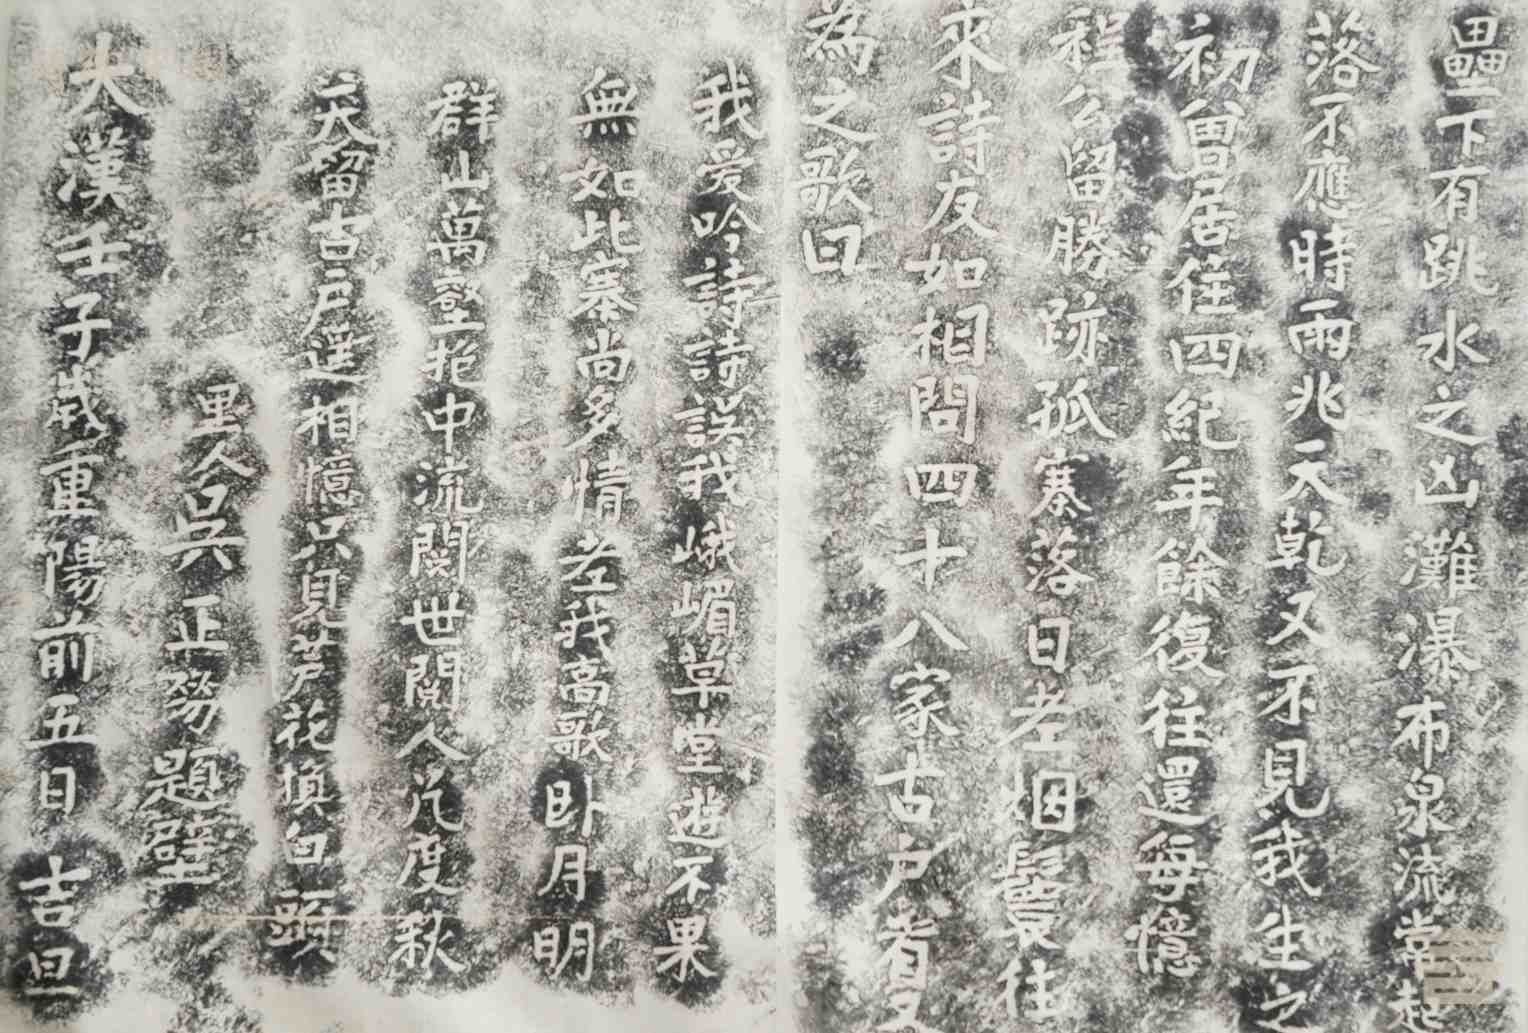 壘下有跳水之凶灘瀑布泉流常起
落不應時雨兆天乾又不見我生之
初曾居住四紀年餘復往還每憶
程公留勝跡孤寨落日老烟鬟往
來詩友如相問四十八家古户者又
為之歌曰
我爱吟詩詩誤我峨嵋草堂遊不果
無如此寨尚多情老我高歌卧月明
群山萬壑抱中流閱世閱人凡度秋
天留古户遥相憶只見芦花換白頭
里人吳正努題壁
大漢壬子歲重陽前五日吉旦